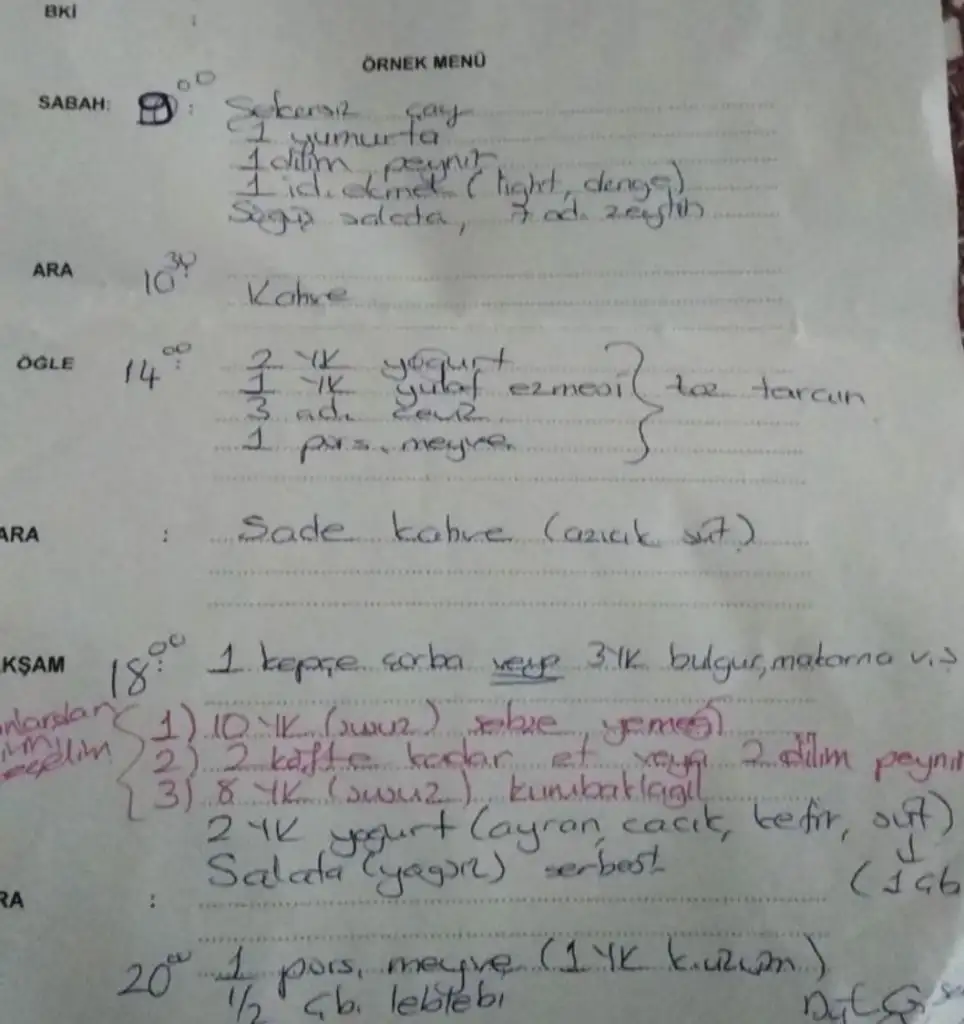 BKİ :
ÖRNEK MENÜ
SABAH: 9⁰⁰ : Şekersiz çay
1 yumurta
1 dilim peynir
1 id. ekmek (light, denge)
Söğüş salata, 7 ad. zeytin
ARA 10³⁰ : Kahve
ÖĞLE 14⁰⁰ : 2 YK yoğurt
1 YK yulaf ezmesi } toz tarçın
3 ad. ceviz
1 pors. meyve
ARA : Sade kahve (azıcık süt)
KŞAM 18⁰⁰ : 1 kepçe çorba veya 3 YK bulgur, makarna v.s
nlardan { 1) 10 YK (susuz) sebze yemeği
eçelim 2) 2 köfte kadar et veya 2 dilim peynir
3) 8 YK (susuz) kurubaklagil
2 YK yoğurt (ayran, cacık, kefir, süt)
Salata (yağsız) serbest (1 çb
RA :
20⁰⁰ 1 pors. meyve (1 YK k.üzüm)
1/2 çb. leblebi
Dyt. G